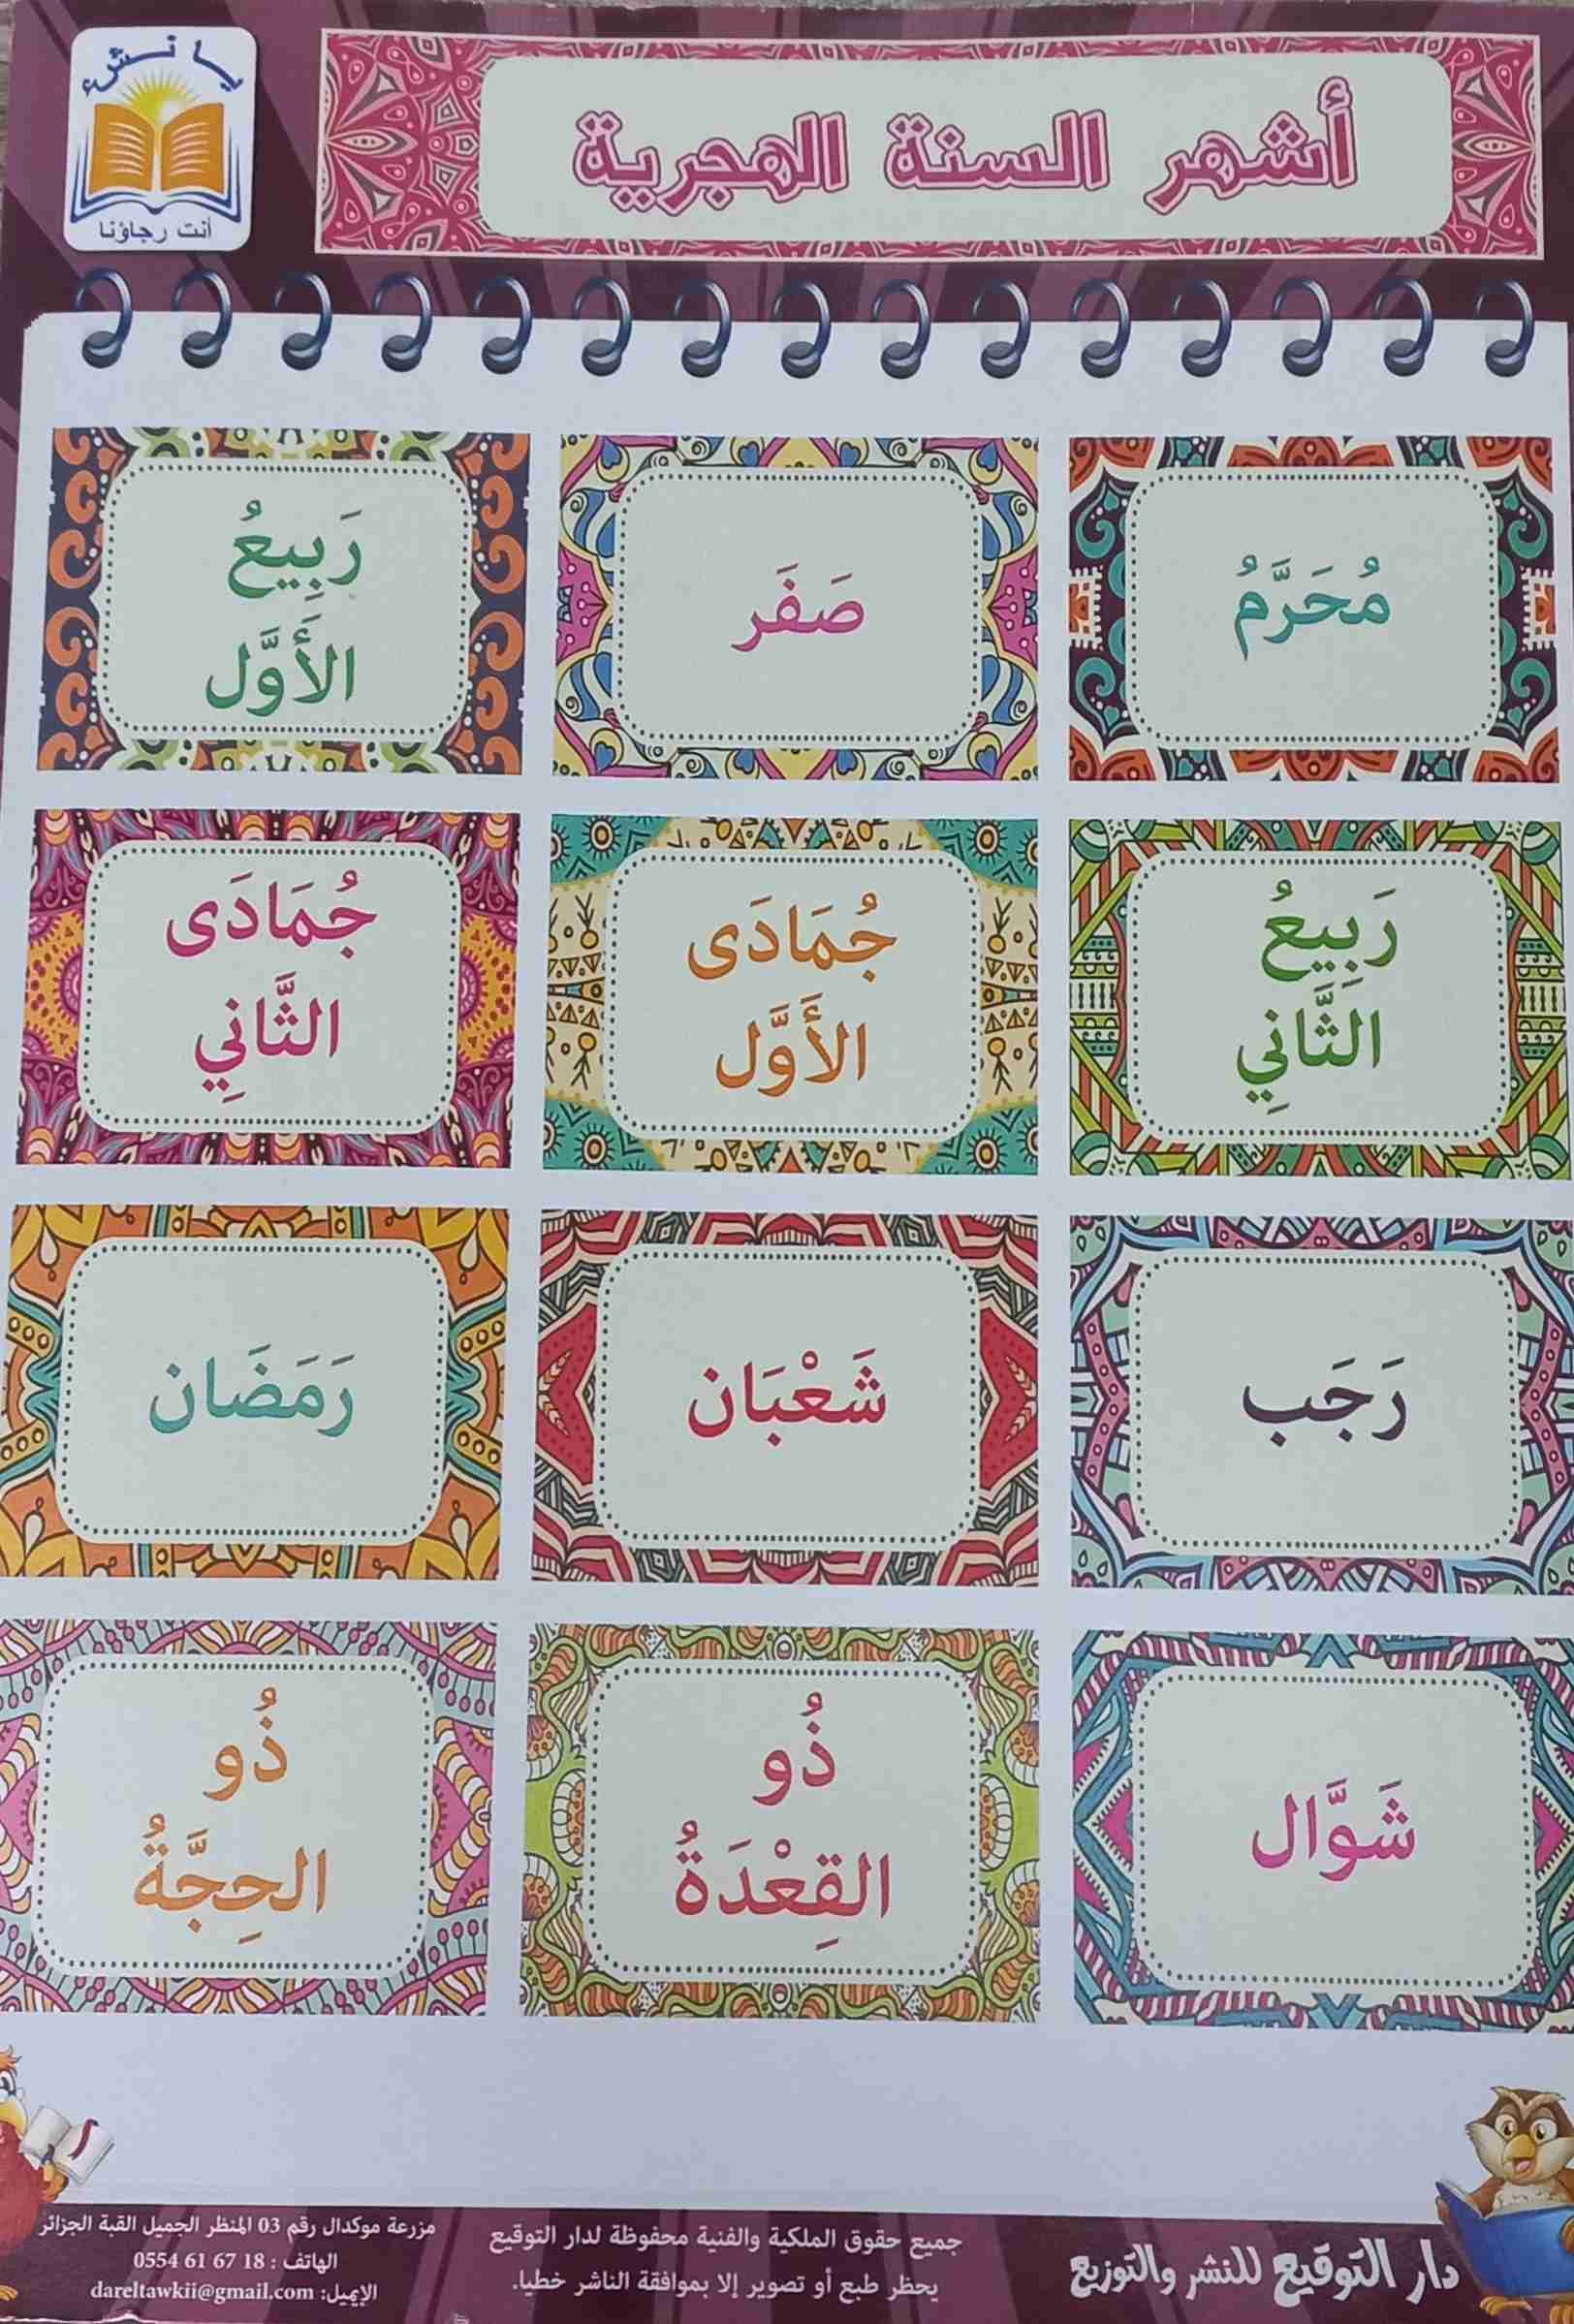 يا نشء
أنت رجاؤنا
أشهر السنة الهجرية
مُحَرَّمُ
صَفَر
رَبِيعُ
الأَوَّل
رَبِيعُ
الثَّانِي
جُمَادَى
الأَوَّل
جُمَادَى
الثَّانِي
رَجَب
شَعْبَان
رَمَضَان
شَوَّال
ذُو
القِعْدَةُ
ذُو
الحِجَّةُ
دار التوقيع للنشر والتوزيع
جميع حقوق الملكية والفنية محفوظة لدار التوقيع
يحظر طبع أو تصوير إلا بموافقة الناشر خطيا.
مزرعة موكدال رقم 03 المنظر الجميل القبة الجزائر
الهاتف : 18 67 61 0554
الإيميل: dareltawkii@gmail.com